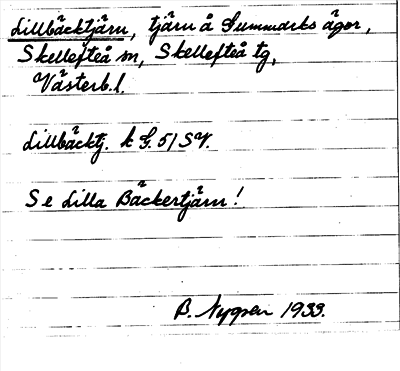 Lillbäcktjärn, tjärn å Summarks ägor,
Skellefteå sn, Skellefteå tg,
Västerb.l.
Lillbäcktj. k G. 51 SV.
Se Lilla Bäckertjärn!
B. Nygren 1933.